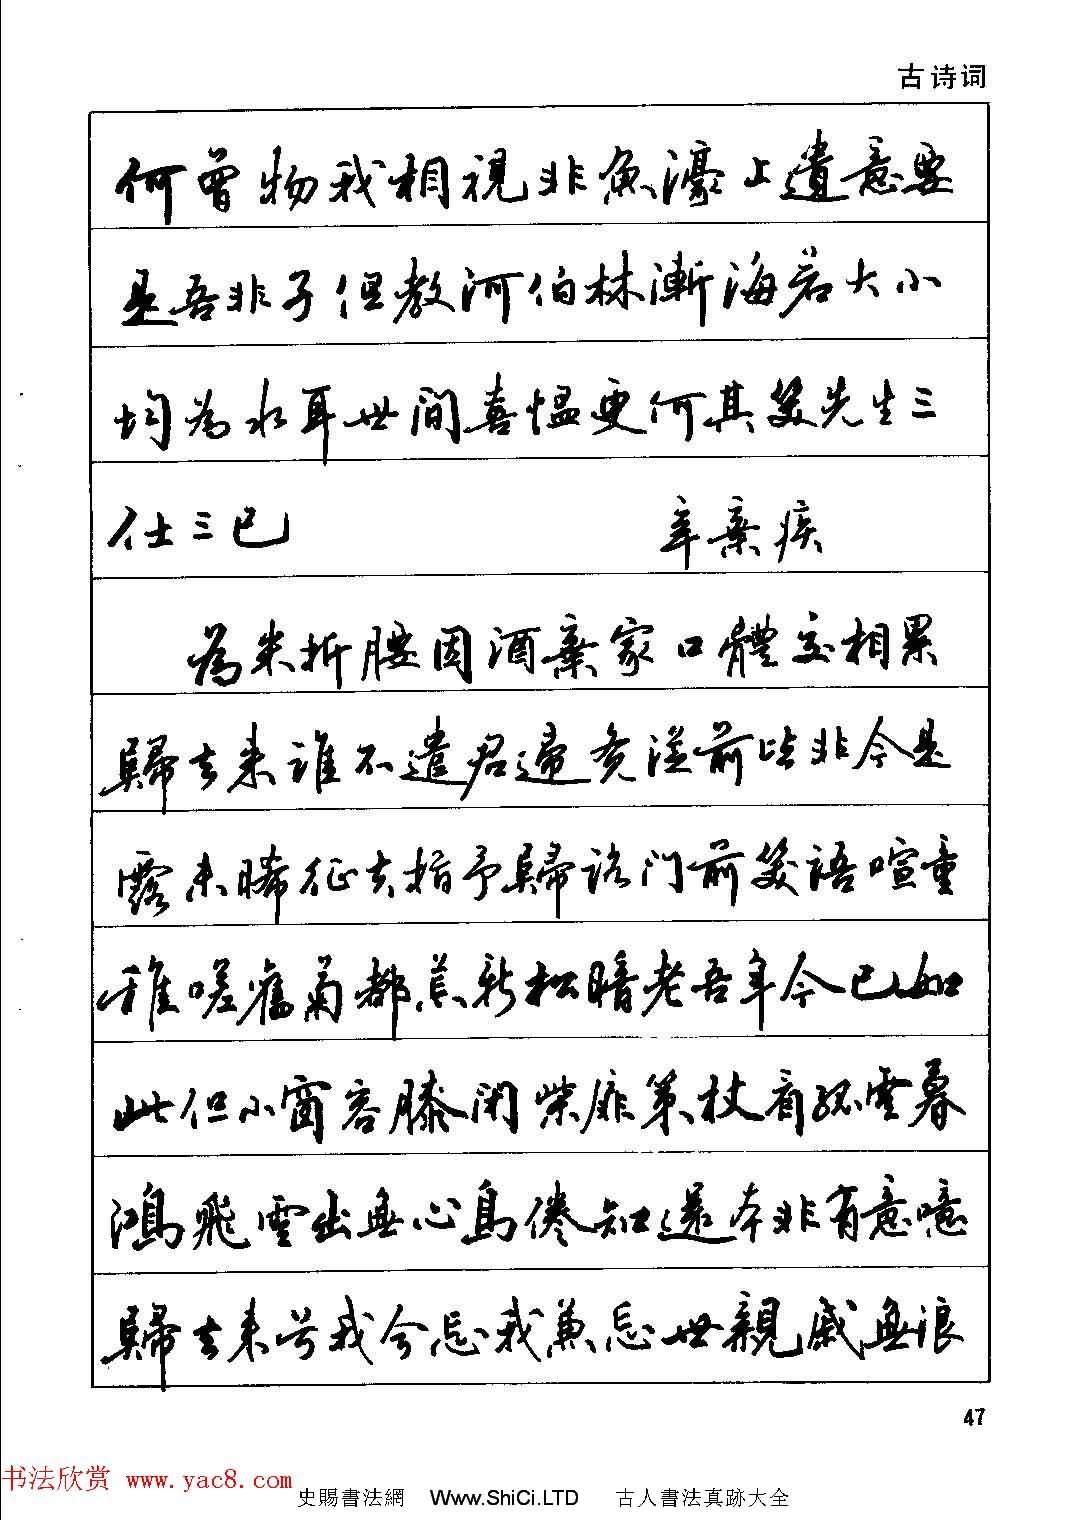 古诗词
何曾物我相視非魚濠上遺意要
是吾非子但教河伯林漸海若大小
均為水耳世間喜愠更何其笑先生三
仕三已 辛棄疾
為米折腰因酒棄家口體交相累
歸去來誰不遣君歸覺從前皆非今是
露未晞征夫指予歸路门前笑語喧童
稚嗟舊菊都荒新松暗老吾年今已如
此但小窗容膝闭柴扉策杖看孤雲暮
鴻飛雲出無心鳥倦知還本非有意噫
歸去來兮我今忘我兼忘世親戚無浪
47
书法欣赏 www.yac8.com
史賜書法網 Www.ShiCi.LTD 古人書法真跡大全